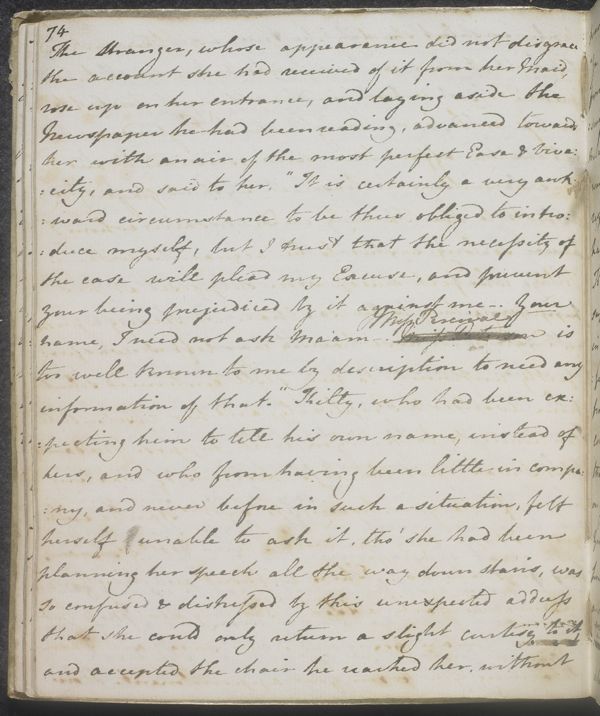 74
The Stranger, whose appearance did not disgrace
the account she had received of it from her Maid,
rose up on her entrance, and laying aside the
Newspaper he had been reading, advanced towards
her with an air of the most perfect Ease & Viva:
:city, and said to her, "It is certainly a very awk
:ward circumstance to be thus obliged to intro:
:duce myself, but I trust that the necessity of
the case will plead my Excuse, and prevent
your being prejudiced by it against me - Your
Miss Percival's
name, I need not ask Ma'am - is
too well known to me by description to need any
information of that." Kitty, who had been ex:
:pecting him to tell his own name, instead of
hers, and who from having been little in compa:
:ny, and never before in such a situation, felt
herself unable to ask it, tho' she had been
planning her speech all the way down stairs, was
so confused & distressed by this unexpected address
that she could only return a slight curtesy to it
and accepted the chair he reached her, without